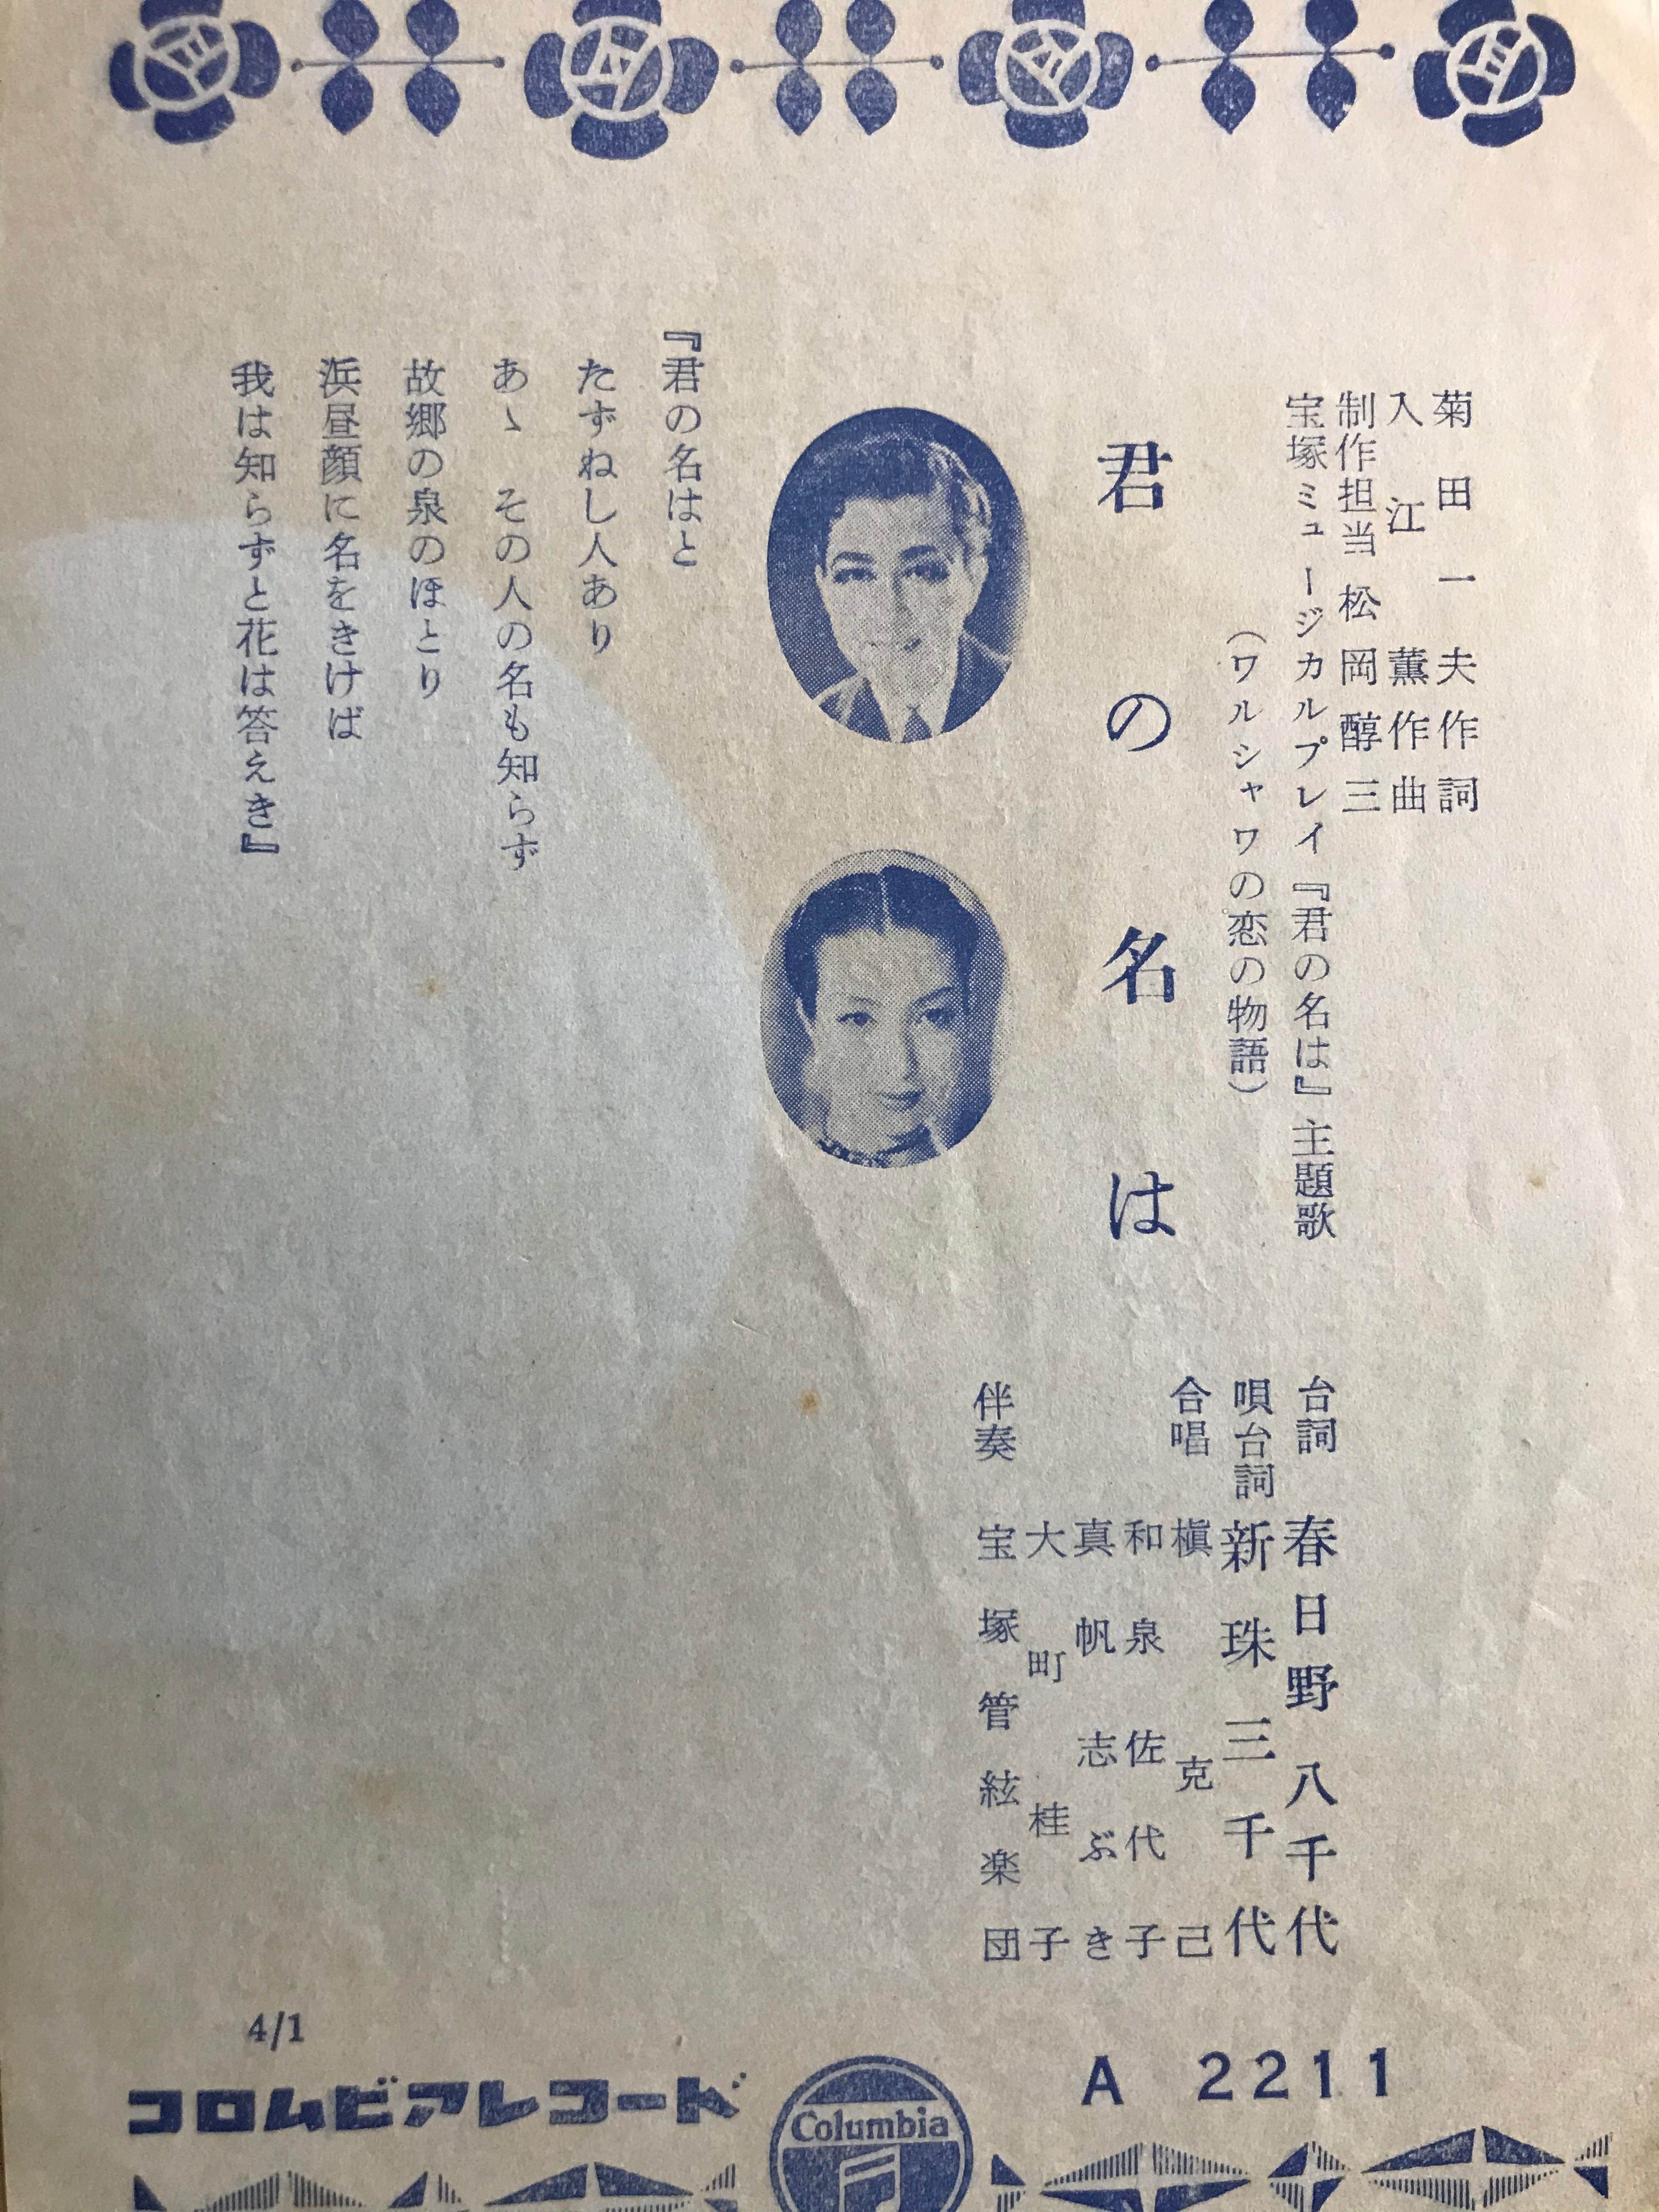 菊田一夫作詞
入江薫作曲
制作担当 松岡醇三
宝塚ミュージカルプレイ『君の名は』主題歌
（ワルシャワの恋の物語）
君の名は
台詞 春日野八千代
唄台詞 新珠三千代
合唱 槇克己
和泉佐代子
真帆志ぶき
大町桂子
伴奏 宝塚管絃楽団
『君の名はと
たずねし人あり
あゝ その人の名も知らず
故郷の泉のほとり
浜昼顔に名をきけば
我は知らずと花は答えき』
A 2211
4/1
コロムビアレコード
Columbia